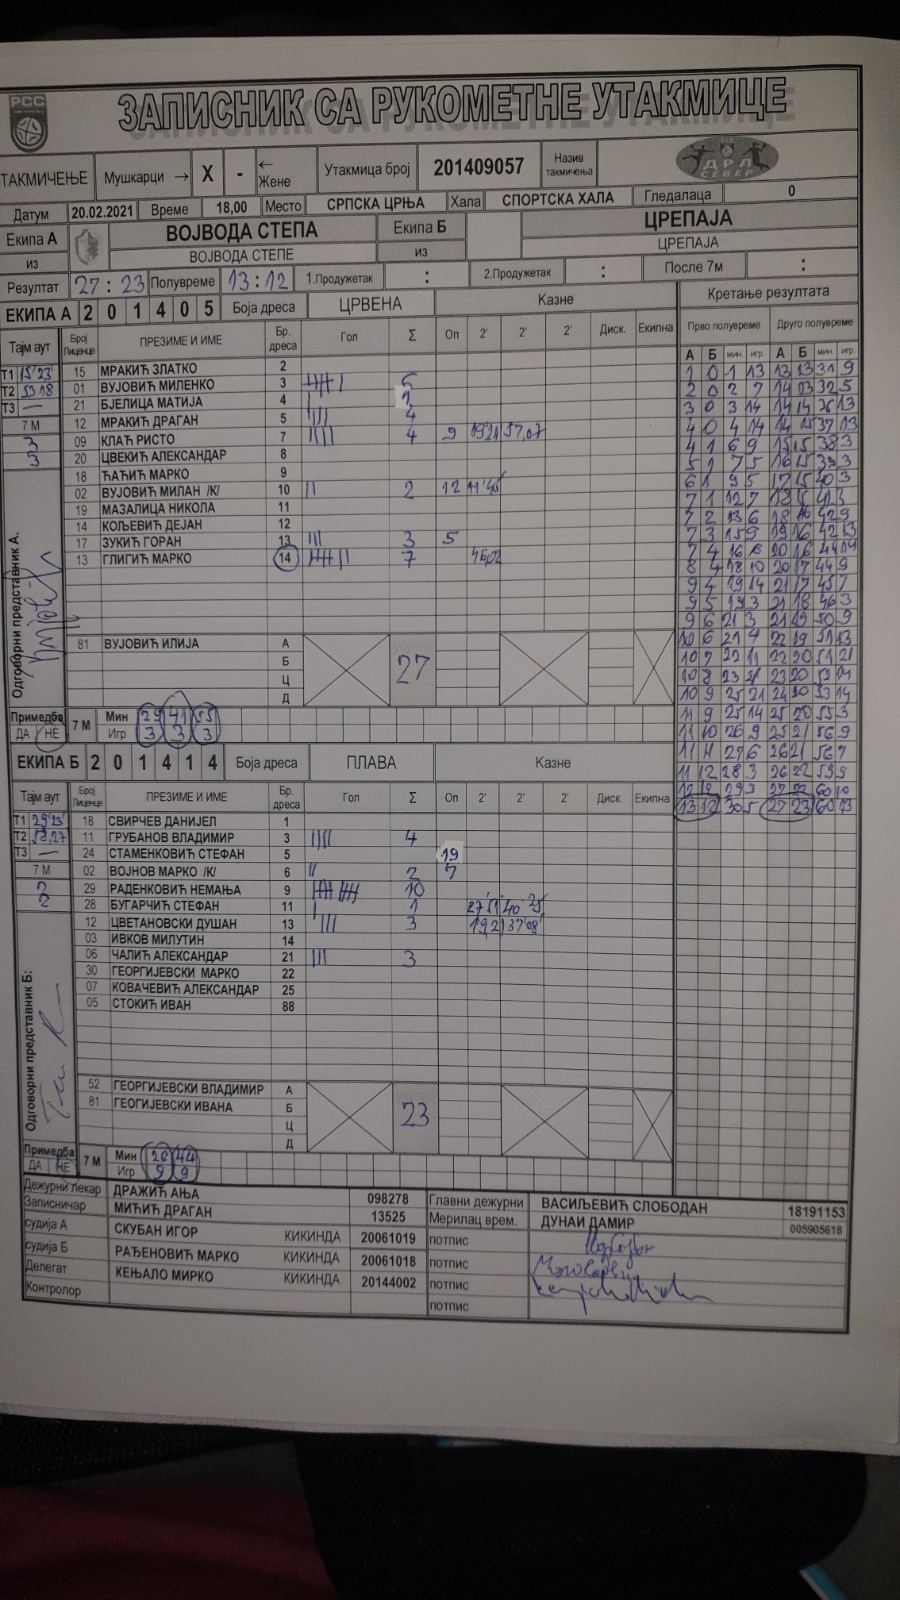 РСС
ЗАПИСНИК СА РУКОМЕТНЕ УТАКМИЦЕ
ТАКМИЧЕЊЕ Мушкарци → X - ← Жене Утакмица број 201409057 Назив такмичења ДРЛ СЕВЕР
Датум 20.02.2021 Време 18,00 Место СРПСКА ЦРЊА Хала СПОРТСКА ХАЛА Гледалаца 0
Екипа А ВОЈВОДА СТЕПА Екипа Б ЦРЕПАЈА
из ВОЈВОДЕ СТЕПЕ из ЦРЕПАЈА
Резултат 27 : 23 Полувреме 13 : 12 1.Продужетак : 2.Продужетак : После 7м :
ЕКИПА А 2 0 1 4 0 5 Боја дреса ЦРВЕНА Казне Кретање резултата
Тајм аут Број Лиценце ПРЕЗИМЕ И ИМЕ Бр. дреса Гол Σ Оп 2' 2' 2' Диск. Екипна Прво полувреме Друго полувреме
А Б мин. игр А Б мин. игр.
Т1 15'23
Т2 53 18
Т3 —
7 М
3
3
15 МРАКИЋ ЗЛАТКО 2
01 ВУЈОВИЋ МИЛЕНКО 3 6
21 БЈЕЛИЦА МАТИЈА 4 1
12 МРАКИЋ ДРАГАН 5 4
09 КЛАЋ РИСТО 7 4 9 19,21 37,07
20 ЦВЕКИЋ АЛЕКСАНДАР 8
18 ЋАЋИЋ МАРКО 9
02 ВУЈОВИЋ МИЛАН /К/ 10 2 12 11'45
19 МАЗАЛИЦА НИКОЛА 11
14 КОЉЕВИЋ ДЕЈАН 12
17 ЗУКИЋ ГОРАН 13 3 5
13 ГЛИГИЋ МАРКО 14 7 46,02
81 ВУЈОВИЋ ИЛИЈА А
Б
Ц
Д
27
Одговорни представник А.
Примедба ДА НЕ 7 М Мин 29 41 55
Игр 3 3 3
ЕКИПА Б 2 0 1 4 1 4 Боја дреса ПЛАВА Казне
Тајм аут Број Лиценце ПРЕЗИМЕ И ИМЕ Бр. дреса Гол Σ Оп 2' 2' 2' Диск. Екипна
Т1 29'23'
Т2 58,27
Т3 —
7 М
2
2
18 СВИРЧЕВ ДАНИЈЕЛ 1
11 ГРУБАНОВ ВЛАДИМИР 3 4
24 СТАМЕНКОВИЋ СТЕФАН 5 19
02 ВОЈНОВ МАРКО /К/ 6 2 7
29 РАДЕНКОВИЋ НЕМАЊА 9 10
28 БУГАРЧИЋ СТЕФАН 11 1 27 51 40 25
12 ЦВЕТАНОВСКИ ДУШАН 13 3 19 21 37'08'
03 ИВКОВ МИЛУТИН 14
06 ЧАЛИЋ АЛЕКСАНДАР 21 3
30 ГЕОРГИЈЕВСКИ МАРКО 22
07 КОВАЧЕВИЋ АЛЕКСАНДАР 25
05 СТОКИЋ ИВАН 88
52 ГЕОРГИЈЕВСКИ ВЛАДИМИР А
81 ГЕОГИЈЕВСКИ ИВАНА Б
Ц
Д
23
Одговорни представник Б:
Примедба ДА НЕ 7 М Мин 26 44
Игр 9 9
1 0 1 13 13 13 31 9
2 0 2 7 14 13 32 5
3 0 3 14 14 14 36 13
4 0 4 14 14 15 37 13
4 1 6 9 15 15 38 3
5 1 7 5 16 15 39 3
6 1 9 5 17 15 40 3
7 1 12 7 18 15 41 3
7 2 13 6 18 16 42 9
7 3 15 9 19 16 42 13
7 4 16 6 20 16 44 14
8 4 18 10 20 17 44 9
9 4 19 14 21 17 45 7
9 5 19 3 21 18 46 3
9 6 21 3 21 19 50 9
10 6 21 4 22 19 51 13
10 7 22 11 22 20 51 21
10 8 23 21 23 20 52 14
10 9 25 21 24 20 53 14
11 9 25 14 25 20 55 3
11 10 26 9 25 21 56 9
11 11 27 6 26 21 56 7
11 12 28 3 26 22 59 9
12 12 29 3 27 22 60 10
13 12 30 5 27 23 60 13
Дежурни лекар ДРАЖИЋ АЊА 098278 Главни дежурни ВАСИЉЕВИЋ СЛОБОДАН 18191153
Записничар МИЋИЋ ДРАГАН 13525 Мерилац врем. ДУНАИ ДАМИР 005905618
судија А СКУБАН ИГОР КИКИНДА 20061019 потпис
судија Б РАЂЕНОВИЋ МАРКО КИКИНДА 20061018 потпис
Делегат КЕЊАЛО МИРКО КИКИНДА 20144002 потпис
Контролор потпис